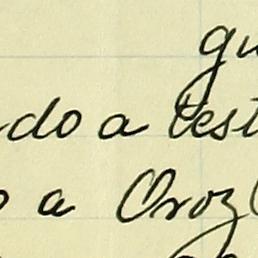 gu
do a test
o a Oroz